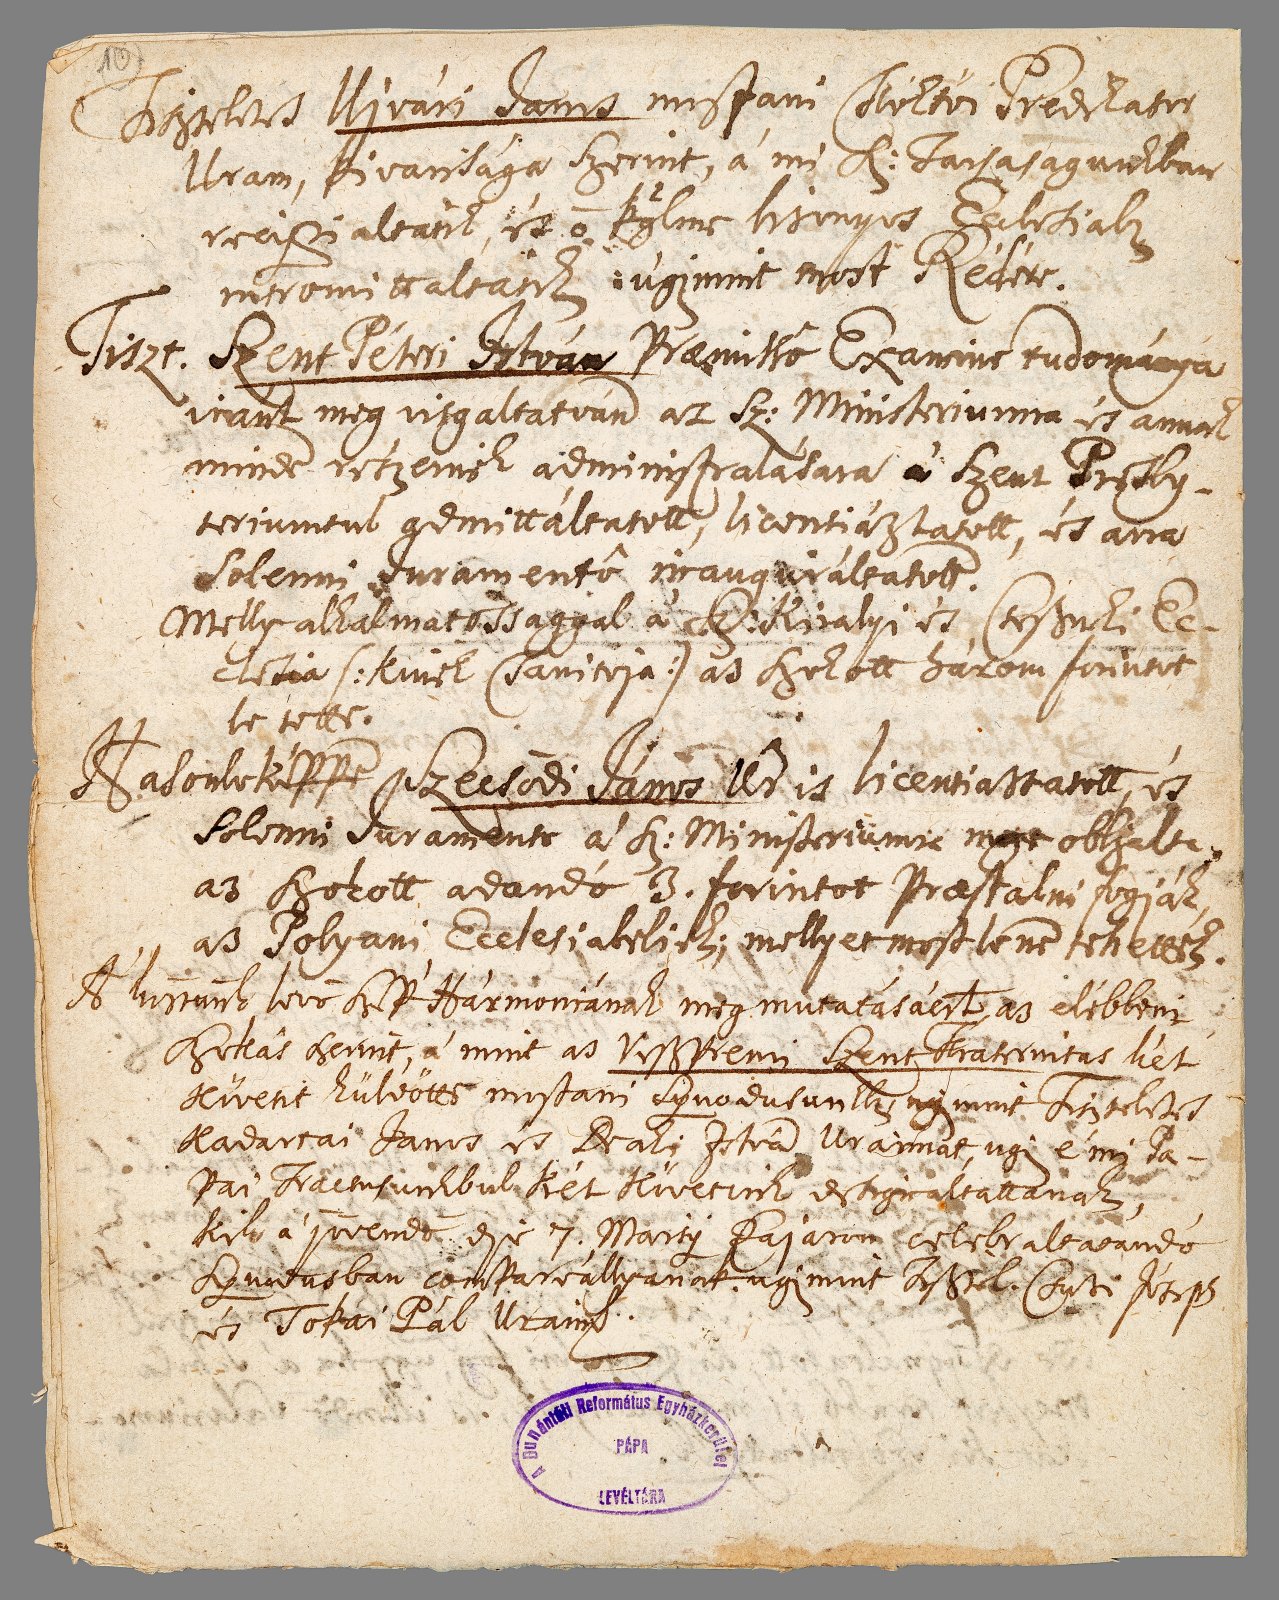 10
Tiszteletes Ujvári Janos mostani Téthi Predikator
Uram, kivansága szerint, á mi Sz: Tarsasagunkban
recipialtatik, és ő kglme bisonyos Ecclesiab
intromittaltatik ugimint most Kédére.
Tiszt. Szent Péteri István Præmittô Examine tudománya
iránt meg visgaltatván az Sz: Ministeriumra és annak
minde részeinek administralására á Szent Presby-
teriumtul admittáltatott, licentiáztatott, és arra
Solenni Juramentô inauguráltatott.
Melly alkalmatossággal á Sz: Királyi és Ec-
clesia (: kinek Tanitoja :) az szokott három forintot
le tette.
Hasonloképpe Szecsödi János Ur is licentiáztatott, és
Solenni Juramente á Sz: Ministeriumra
az szokott adando 3. forintot præstalni fogják
az Polyani Ecclesiabeliek; mellyet most le ne tehettek.
Á köztünk levő szép Hármoniának meg mutatásáért, az elébbeni
szokás szerint, á mint az Veszpremi Szent Fraternitas két
követit küldötte mostani Synodusunkb, ugimint Tiszteletes
Kadartai Janos és Deaki István Uraimat, ugi é mi Pa-
pai Tractusunkbul két követink designáltattanak,
kik á jövendö die 7. Martij Pajaron celebraltatando
Synodusban compareállyanak, ugimint Tisztel. Csuzi Jósep
és Tokai Pál Uraink.
A Dunántúli Református Egyházkerület
PÁPA
LEVÉLTÁRA